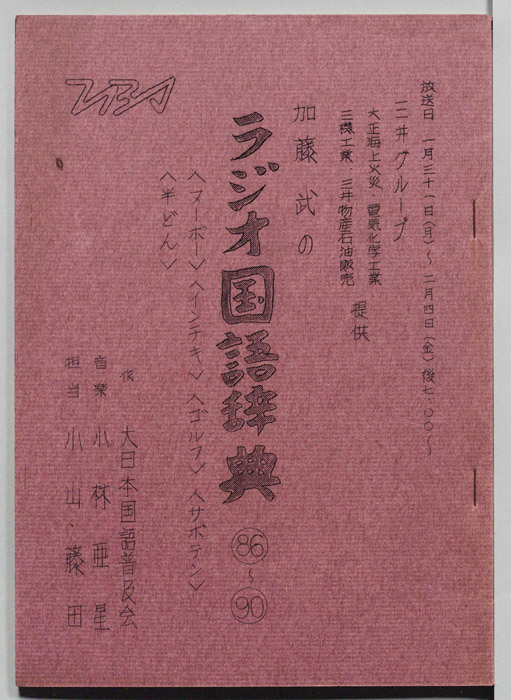 放送日 一月三十一日(月)～二月四日(金)後七.〇〇～
三井グループ
大正海上火災 電気化学工業
三機工業 三井物産石油販売
提供
加藤武の
ラジオ国語辞典 86～90
〈ヌーボー〉〈インチキ〉〈ゴルフ〉〈サボテン〉
〈半どん〉
作 大日本国語普及会
音楽 小林亜星
担当 小山、藤田